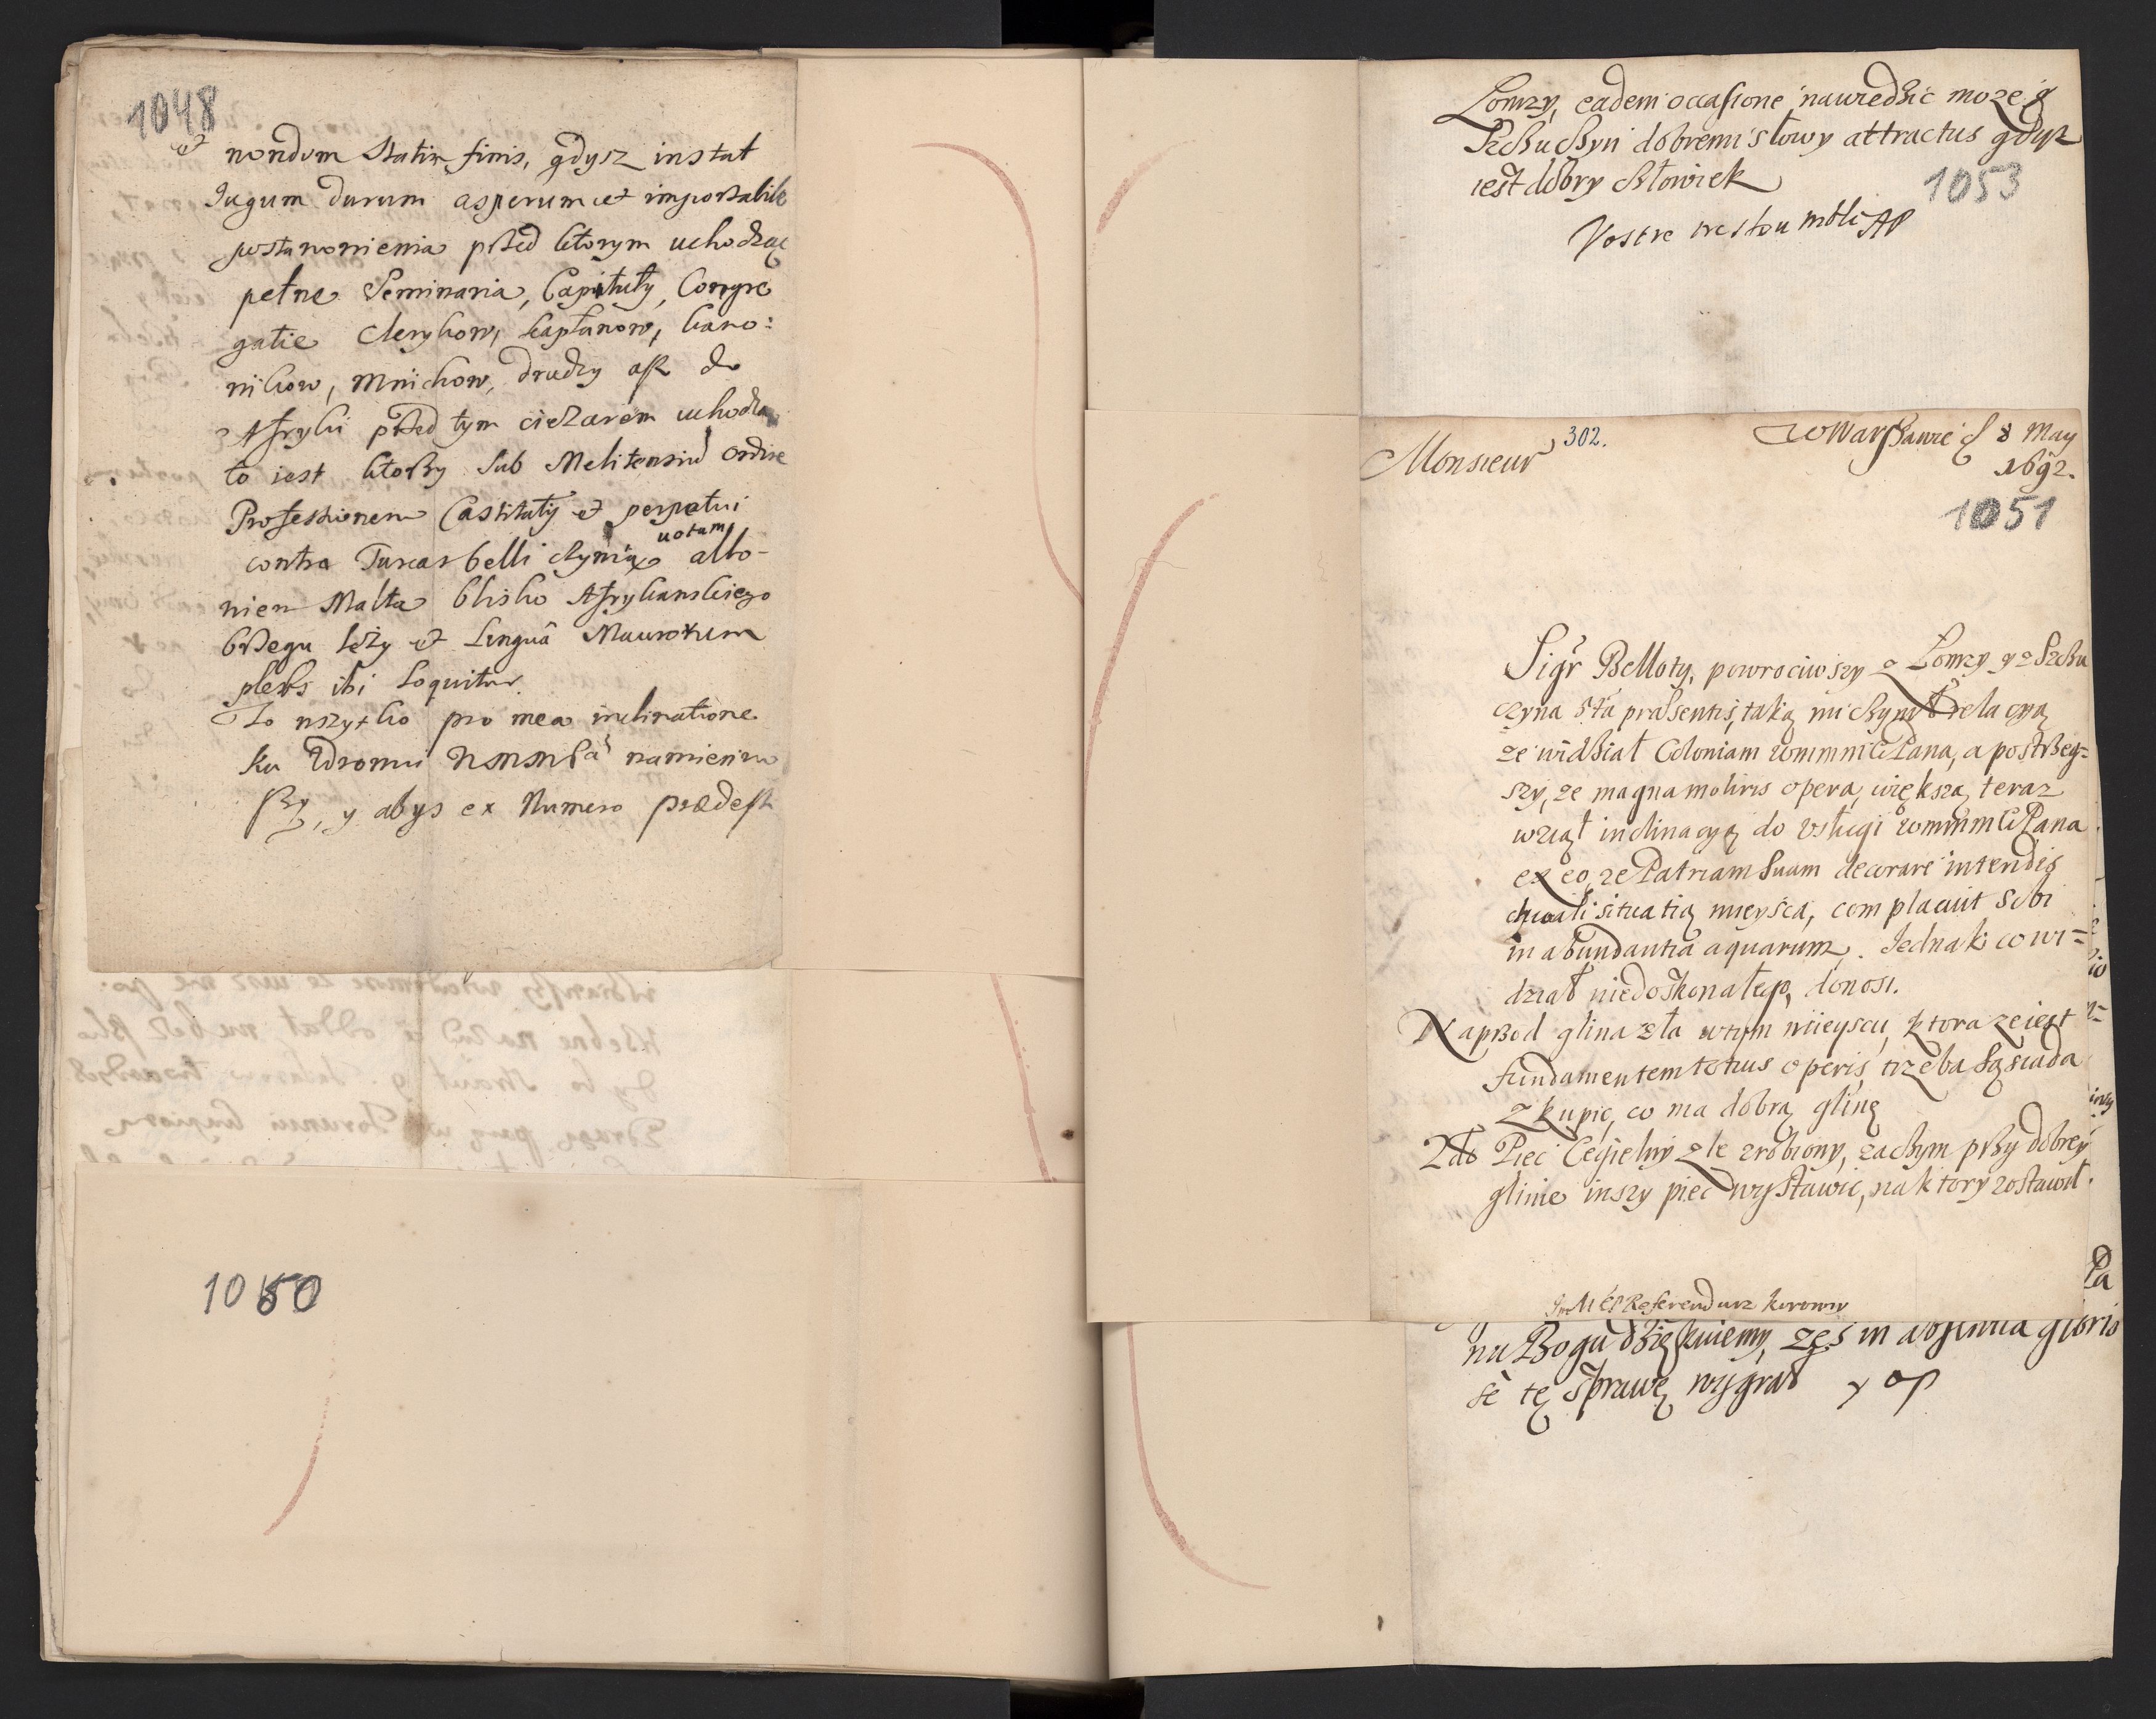 1048
et nondum Statim finis, gdysz instat
Iugum durum asperum et importabile
postanowienia przed ktorym uchodząc
pełne Seminaria, Capituły, Congre
gatie Clerykow, kapłanow, kano:
nikow, Mnichow, drudzy asz do
Afryki przed tym ciężarem uchodzą
to iest ktorzy Sub Melitensiu ordine
Professionem Castitatis et perpetui
uotum
contra Turcas belli czynią albo-
niem Malta blisko Afrykanskiego
brzegu leży et Linguâ Maurorum
plebs ibi Loquitur.
To wszytko pro mea inclinatione
ku Zdrowiu namieniw
szy, y abys ex Numero prædest
1050
Lomzy, eadem occasione nawiedzic moze y
Szczuczyn dobremi słowy attractus gdysz
iest dobry człowiek
1053
Vostre
Monsieur
302.
w Warszawie d 8 May
1692.
1051
Sigr Belloty, powrociwszy z Lomzy y z Szczu
czyna taką mi czynił relacyą
ze widział Coloniam wmmmCiPana, a postrzeg=
szy, ze magna moliris opera, większą teraz
wziął inclinacyą do vsługi wmmmCiPana
ex eo, ze Patriam suam decorare intendis
chwali situatią mieysca, complacuit sibi
in abundantia aquarum. Jednak co wi=
dział niedoskonałego, donosi.
Naprzod glina zła wtym mieyscu, ktora ze iest
fundamentem totius operis, trzeba Sąsiada
zkupic, co ma dobrą glinę
2do Piec Cegielny zle zrobiony, zaczym przy dobrey
glinie inszy piec wystawic, na ktory zostawił.
Referendarz koronny
nu Bogu dziękuiemy, zęs in absentia glorio
sè tę sprawę wygrał